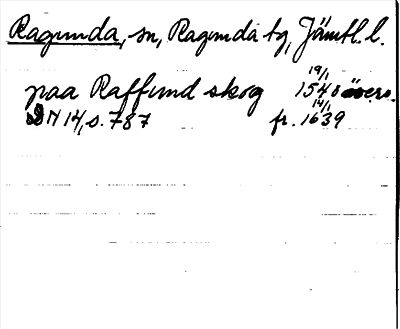 Ragunda, sn, Ragunda tg, Jämtl. l.
paa Raffund skog 19/1 1540 övers.
DN 14, s. 787 14/1 fr. 1639